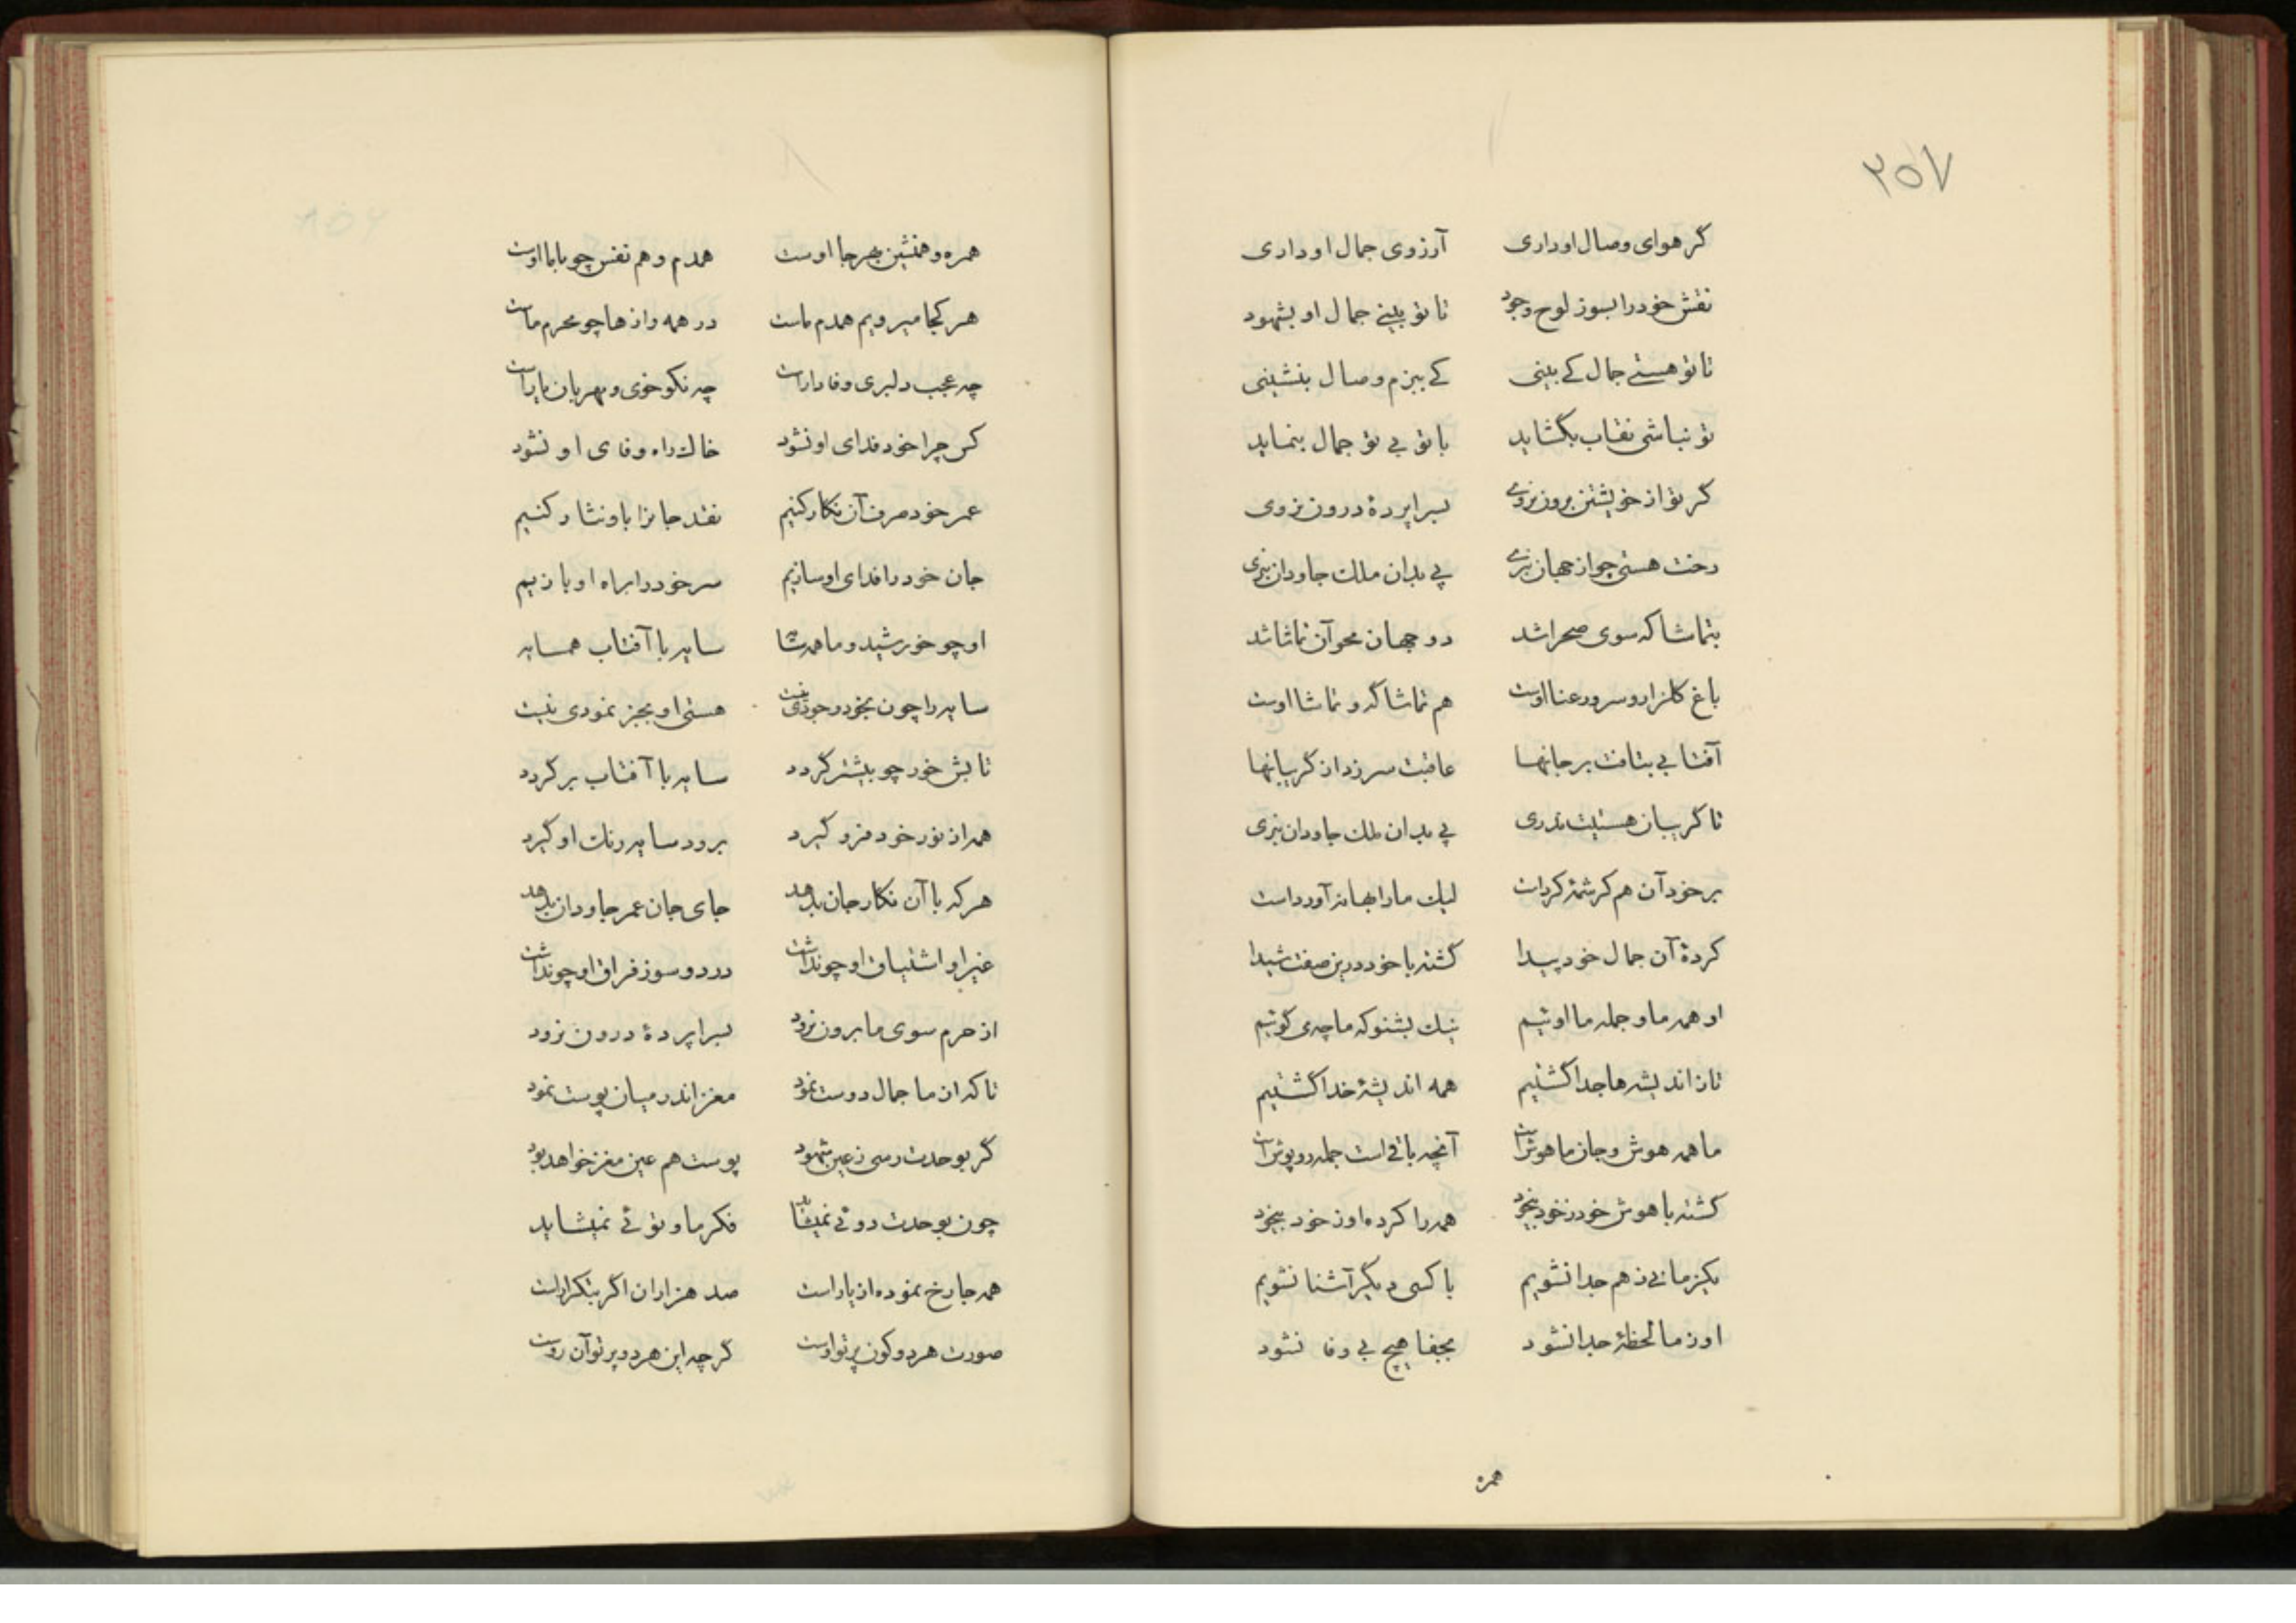 ۳۵۷
گر هوای وصال او داری آرزوی جمال او داری
نقش خود را بسوز لوح وجود تا تو بینی جمال او بشهود
تا تو هستی جمال کے بینی کے ببزم وصال بنشینی
تو نباشی نقاب بگشاید با تو بی تو جمال بنماید
گر تو از خویشتن برون نروی بسراپردهٔ درون نروی
رخت هستی چو از جهان نبری پی بدان ملک جاودان نبری
بتماشا که سوی صحرا شد دو جهان محو آن تماشا شد
باغ گلزار و سرو رعنا اوست هم تماشاگه و تماشا اوست
آفتابی بتافت بر جانها عاقبت سر زد از گریبانها
تا گریبان هستیت ندری پی بدان ملک جاودان نبری
بر خود آن هم کرشمهٔ کرداست لیک ما را بهانه آورداست
کردهٔ آن جمال خود پیدا گشته با خود درین صفت شیدا
او همه ما و جمله ما اوئیم نیک بشنو که ما چه می گوئیم
تا ز اندیشه‌ها جدا گشتیم همه اندیشهٔ خدا گشتیم
ما همه هوش و جان ما هوش است آنچه باقی است جمله روپوش است
گشته با هوش خود ز خود بیخود همه را کرده او ز خود بیخود
یکزمانی ز هم جدا نشویم با کسی دیگر آشنا نشویم
او ز ما لحظهٔ جدا نشود بجفا هیچ بی وفا نشود
همره
همره و همنشین بهر جا اوست همدم و هم نفس چو با ما اوست
هر کجا میرویم همدم ماست در همه رازها چو محرم ماست
چه عجب دلبری وفادار است چه نکو خوی و مهربان یار است
کس چرا خود فدای او نشود خاک راه وفای او نشود
عمر خود صرف آن نگار کنیم نقد جانرا باو نثار کنیم
جان خود را فدای او سازیم سر خود را براه او بازیم
او چو خورشید و ما همه سایه سایه با آفتاب همسایه
سایه را چون بخود وجودی نیست هستی او بجز نمودی نیست
تابش خور چو بیشتر گردد سایه با آفتاب بر گردد
همه از نور خود فرو گیرد برود سایه رنگ او گیرد
هر که با آن نگار جان بدهد جای جان عمر جاودان بدهد
غیر او اشتیاق او چو نداشت درد و سوز فراق او چو نداشت
از حرم سوی ما برون نرود بسراپردهٔ درون نرود
تا که از ما جمال دوست نمود مغز اندر میان پوست نمود
گر بوحدت رسی ز عین شهود پوست هم عین مغز خواهد بود
چون بوحدت دوئی نمیشاید فکر ما و توئی نمیشاید
همه جا رخ نموده از یار است صد هزاران اگر بتکرار است
صورت هر دو کون پرتو اوست گرچه این هر دو پرتو آن روست